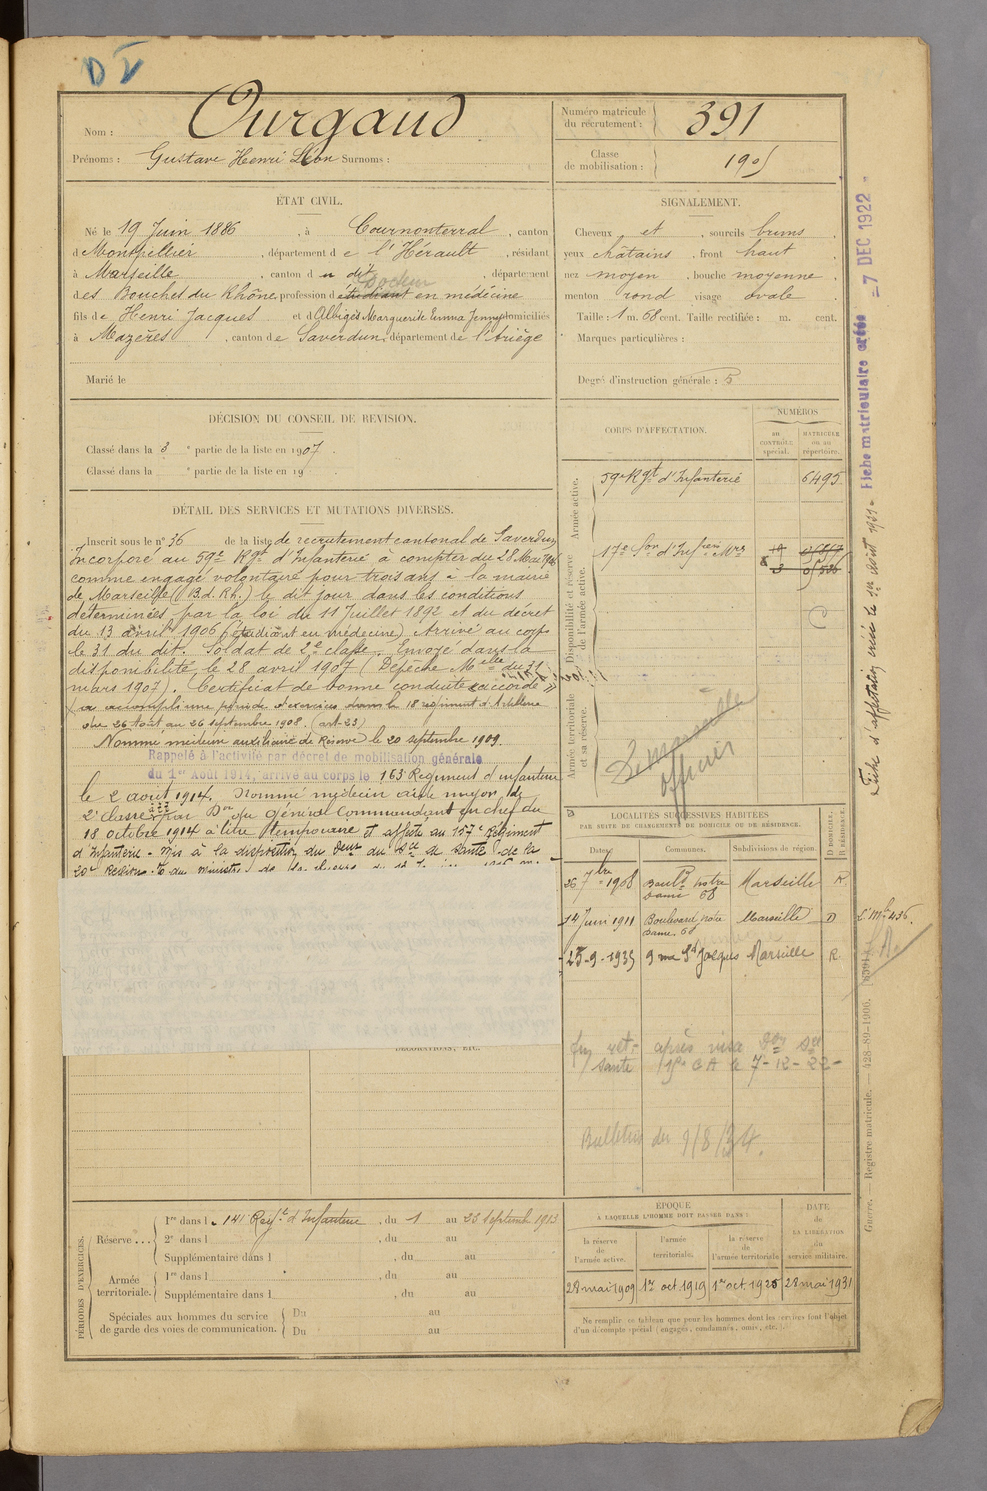 DV
Nom : Ourgaud
Prénoms : Gustave Henri Léon Surnoms :
Numéro matricule du recrutement : 391
Classe de mobilisation : 1905
ÉTAT CIVIL.
Né le 19 Juin 1886, à Cournonterral, canton
de Montpellier, département de l'Hérault, résidant
à Marseille, canton du dit, département
Docteur
des Bouches du Rhône, profession d'étudiant en médecine
fils de Henri Jacques et d'Albigès Marguerite Emma Jenny domiciliés
à Mazères, canton de Saverdun, département de l'Ariège
Marié le
SIGNALEMENT.
Cheveux et, sourcils bruns
yeux châtains, front haut
nez moyen, bouche moyenne
menton rond visage ovale
Taille : 1 m. 68 cent. Taille rectifiée : m. cent.
Marques particulières :
Degré d'instruction générale : 5
DÉCISION DU CONSEIL DE REVISION.
Classé dans la 3e partie de la liste en 1907.
Classé dans la e partie de la liste en 19
DÉTAIL DES SERVICES ET MUTATIONS DIVERSES.
Inscrit sous le n° 36 de la liste de recrutement cantonal de Saverdun
Incorporé au 59e Rgt d'Infanterie à compter du 28 Mai 1906
comme engagé volontaire pour trois ans à la mairie
de Marseille (B.d.Rh.) le dit jour dans les conditions
déterminées par la loi du 11 Juillet 1892 et du décret
du 13 avril 1906 (étudiant en médecine) Arrivé au corps
le 31 du dit. Soldat de 2e classe. Envoyé dans la
disponibilité le 28 avril 1907 (Dépêche Melle du 31
mars 1907). Certificat de bonne conduite accordé
(a accompli une période d'exercices dans le 18 régiment d'Artillerie
du 26 Août au 26 septembre 1908. (art. 23)
Nommé médecin auxiliaire de Réserve le 20 septembre 1909.
Rappelé à l'activité par décret de mobilisation générale
du 1er Août 1914, arrivé au corps le 163 Régiment d'infanterie
le 2 août 1914. Nommé médecin aide major de
2e classe par Don du Général Commandant en chef du
18 octobre 1914 à titre temporaire et affecté au 157e Régiment
d'Infanterie - Mis à la disposition du Deur du Sce de Santé de la
DÉCORATIONS, ETC.
CORPS D'AFFECTATION.
NUMÉROS
AU CONTRÔLE spécial.
MATRICULE ou au répertoire.
Armée active.
59e Rgt d'Infanterie 6495
Disponibilité et réserve de l'armée active.
17e Son d'Infiers Mres
Armée territoriale et sa réserve.
officier
LOCALITÉS SUCCESSIVES HABITÉES
PAR SUITE DE CHANGEMENT DE DOMICILE OU DE RÉSIDENCE.
Dates. Communes. Subdivisions de région. D DOMICILE. R RÉSIDENCE.
26 7bre 1908 Boulrd Notre Dame 68 Marseille R.
14 Juin 1911 Boulevard Notre Dame. 68 Marseille D
25-9-1935 9 rue St Jacques Marseille R.
après visa
santé 15e CA le 7-12-22-
Bulletin du 9/8/34.
PÉRIODES D'EXERCICES.
Réserve...
1re dans le 141e Regt d'Infanterie, du 1 au 23 septembre 1913
2e dans l , du au
Supplémentaire dans l , du au
Armée territoriale.
1re dans l , du au
Supplémentaire dans l , du au
Spéciales aux hommes du service de garde des voies de communication.
Du au
Du au
ÉPOQUE
A LAQUELLE L'HOMME DOIT PASSER DANS :
la réserve de l'armée active.
l'armée territoriale.
la réserve de l'armée territoriale
DATE de LA LIBÉRATION du service militaire.
28 mai 1909 1er oct. 1919 1er oct. 1925 28 mai 1931
Ne remplir ce tableau que pour les hommes dont les services font l'objet
d'un décompte spécial (engagés, condamnés, omis, etc.).
Fiche matriculaire créée -7 DEC 1922
Fiche d'affectation créée le 1er août 1931
Guerre. — Registre matricule. — 428-89-1906.